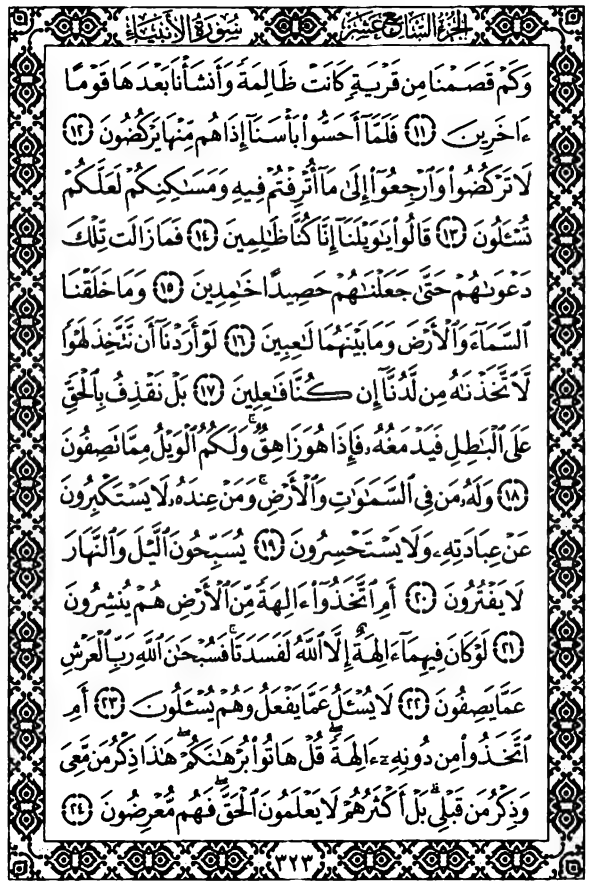 الجزء السابع عشر سورة الأنبياء
وَكَمْ قَصَمْنَا مِن قَرْيَةٍ كَانَتْ ظَالِمَةً وَأَنشَأْنَا بَعْدَهَا قَوْمًا
ءَاخَرِينَ ﴿١١﴾ فَلَمَّآ أَحَسُّوا۟ بَأْسَنَآ إِذَا هُم مِّنْهَا يَرْكُضُونَ ﴿١٢﴾
لَا تَرْكُضُوا۟ وَٱرْجِعُوٓا۟ إِلَىٰ مَآ أُتْرِفْتُمْ فِيهِ وَمَسَـٰكِنِكُمْ لَعَلَّكُمْ
تُسْـَٔلُونَ ﴿١٣﴾ قَالُوا۟ يَـٰوَيْلَنَآ إِنَّا كُنَّا ظَـٰلِمِينَ ﴿١٤﴾ فَمَا زَالَت تِّلْكَ
دَعْوَىٰهُمْ حَتَّىٰ جَعَلْنَـٰهُمْ حَصِيدًا خَـٰمِدِينَ ﴿١٥﴾ وَمَا خَلَقْنَا
ٱلسَّمَآءَ وَٱلْأَرْضَ وَمَا بَيْنَهُمَا لَـٰعِبِينَ ﴿١٦﴾ لَوْ أَرَدْنَآ أَن نَّتَّخِذَ لَهْوًا
لَّٱتَّخَذْنَـٰهُ مِن لَّدُنَّآ إِن كُنَّا فَـٰعِلِينَ ﴿١٧﴾ بَلْ نَقْذِفُ بِٱلْحَقِّ
عَلَى ٱلْبَـٰطِلِ فَيَدْمَغُهُۥ فَإِذَا هُوَ زَاهِقٌ ۚ وَلَكُمُ ٱلْوَيْلُ مِمَّا تَصِفُونَ
﴿١٨﴾ وَلَهُۥ مَن فِى ٱلسَّمَـٰوَٰتِ وَٱلْأَرْضِ ۚ وَمَنْ عِندَهُۥ لَا يَسْتَكْبِرُونَ
عَنْ عِبَادَتِهِۦ وَلَا يَسْتَحْسِرُونَ ﴿١٩﴾ يُسَبِّحُونَ ٱلَّيْلَ وَٱلنَّهَارَ
لَا يَفْتُرُونَ ﴿٢٠﴾ أَمِ ٱتَّخَذُوٓا۟ ءَالِهَةً مِّنَ ٱلْأَرْضِ هُمْ يُنشِرُونَ
﴿٢١﴾ لَوْ كَانَ فِيهِمَآ ءَالِهَةٌ إِلَّا ٱللَّهُ لَفَسَدَتَا ۚ فَسُبْحَـٰنَ ٱللَّهِ رَبِّ ٱلْعَرْشِ
عَمَّا يَصِفُونَ ﴿٢٢﴾ لَا يُسْـَٔلُ عَمَّا يَفْعَلُ وَهُمْ يُسْـَٔلُونَ ﴿٢٣﴾ أَمِ
ٱتَّخَذُوا۟ مِن دُونِهِۦٓ ءَالِهَةً ۖ قُلْ هَاتُوا۟ بُرْهَـٰنَكُمْ ۖ هَـٰذَا ذِكْرُ مَن مَّعِىَ
وَذِكْرُ مَن قَبْلِى ۗ بَلْ أَكْثَرُهُمْ لَا يَعْلَمُونَ ٱلْحَقَّ ۖ فَهُم مُّعْرِضُونَ ﴿٢٤﴾
٣٢٣